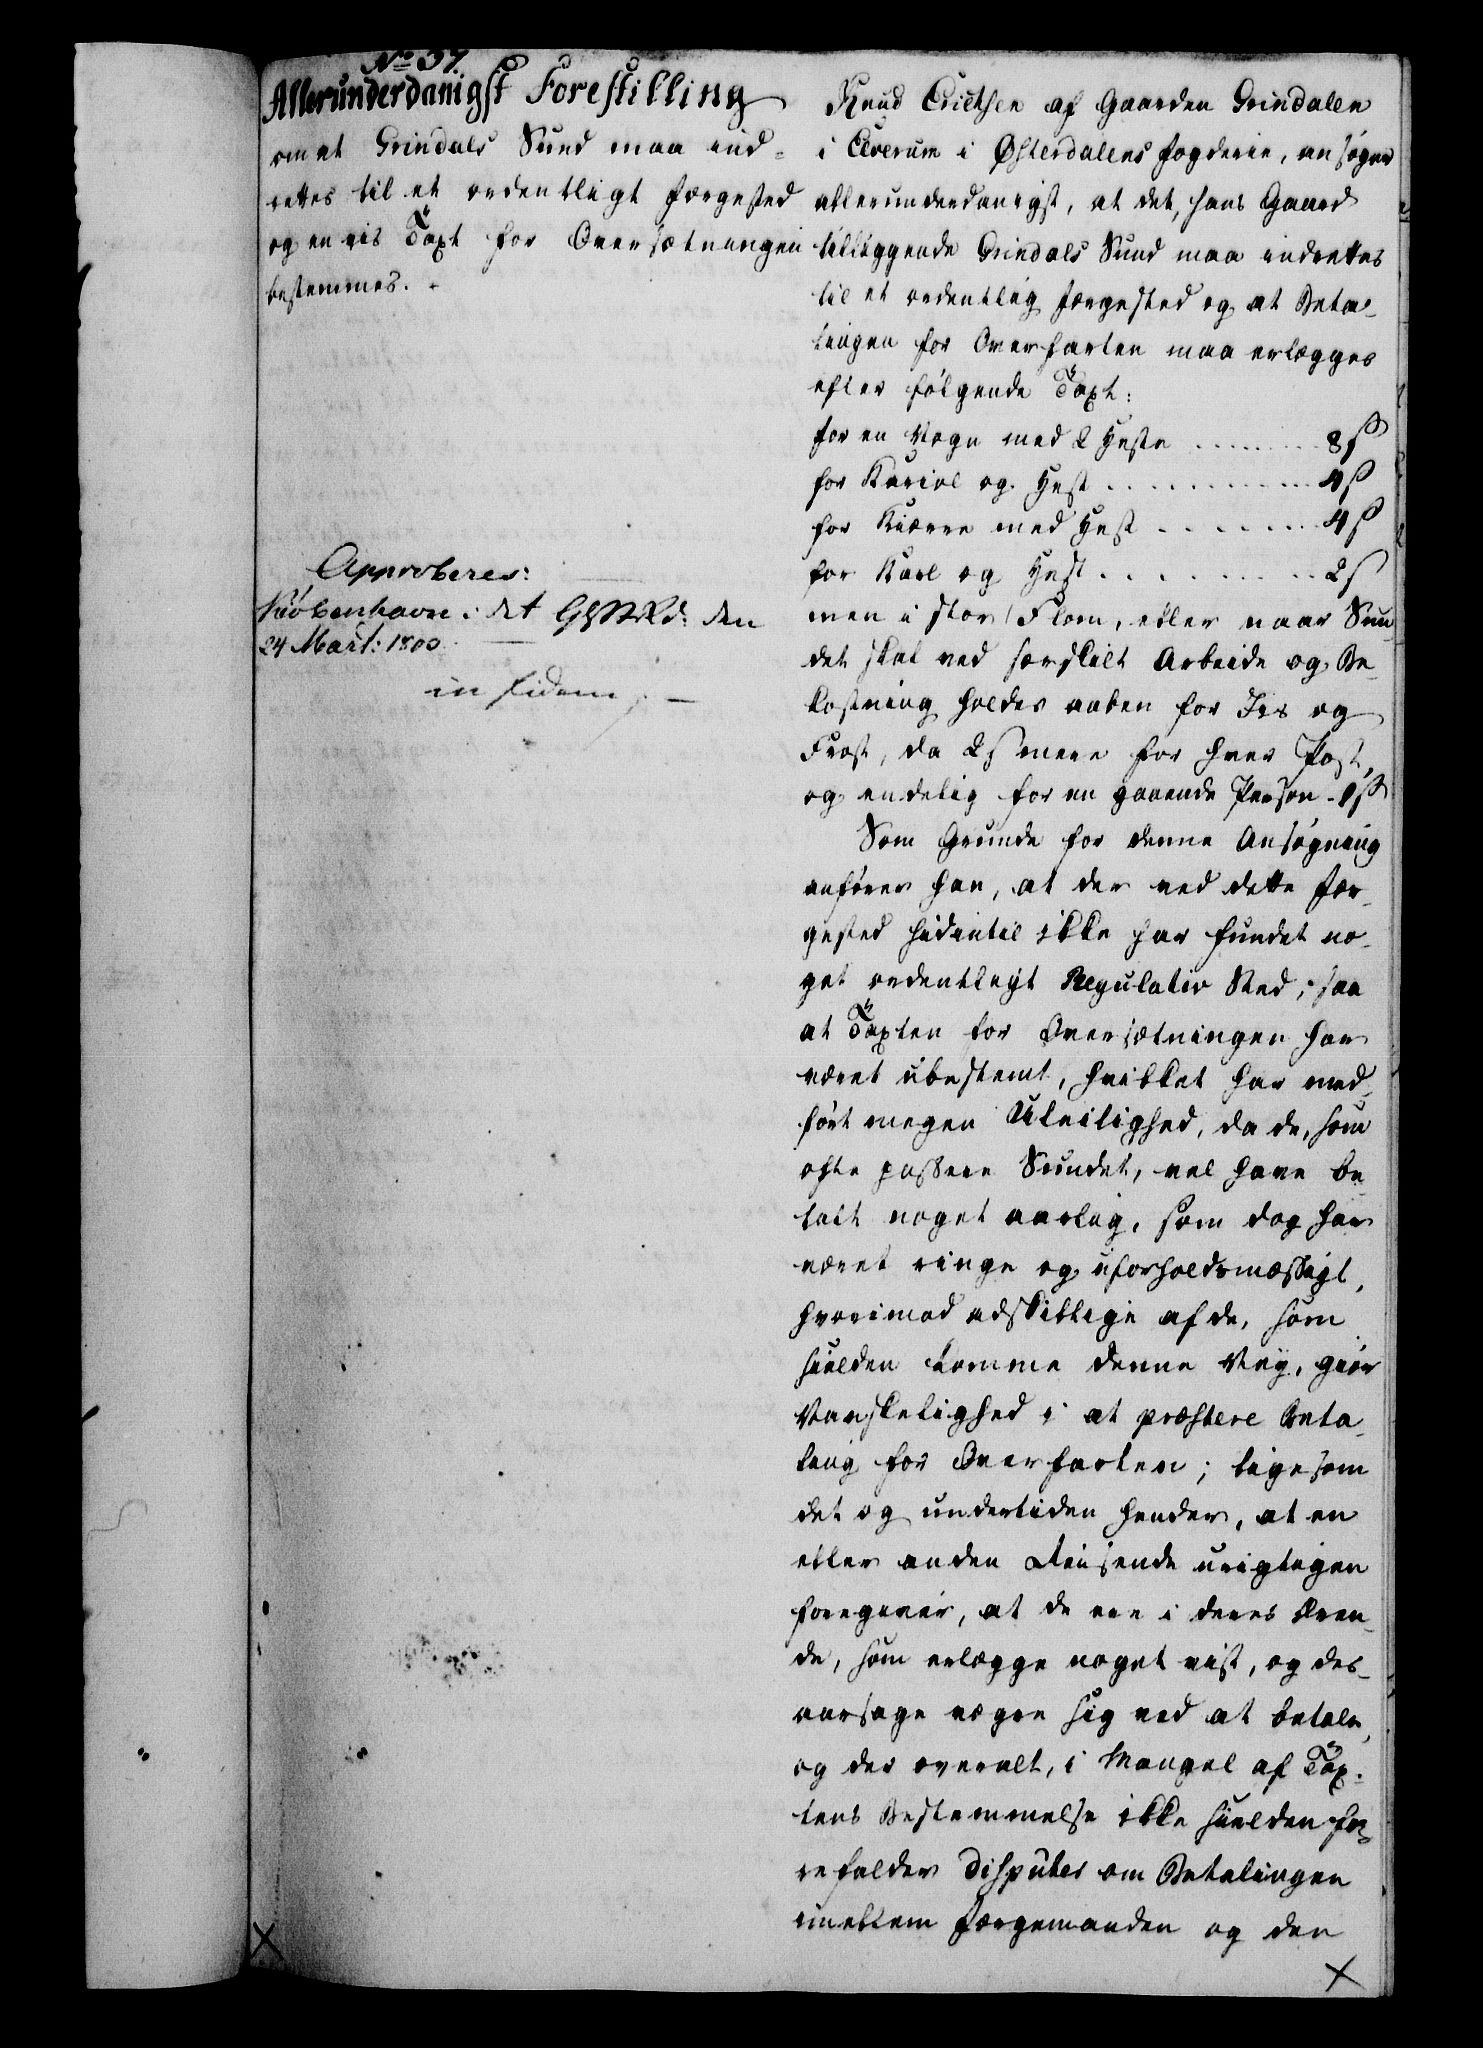 No 37.
Allerunderdanigst Forestilling
om at Grindals Sund maa ind-
rettes til et ordentligt Færgested
og en vis Taxt for Oversætningen
bestemmes.
Approberes:
Kiøbenhavn i det den
24 Mart: 1800.
in fidem
Knud Erichsen af Gaarden Grindalen
i Elverum i Østerdalens Fogderie, ansøger
allerunderdanigst, at det, hans Gaard
tilliggende Grindals Sund maa indrettes
til et ordentlig Færgested og at Beta-
lingen for Overfarten maa erlægges
efter følgende Taxt:
for en Vogn med 2 Heste ....... 8 ß
for Kariol og Hest .......... 4 ß
for Kiærre med Hest ....... 4 ß
for Karl og Hest ......... 2 ß
men i stor Flom, eller naar Sun-
det skal ved særskilt Arbeide og Be-
kostning holdes aaben for Iis og
Frost, da 2 ß mere for hver Post,
og endelig for en gaaende Person - 1 ß
Som Grunde for denne Ansøgning
anfører han, at der ved dette Fær-
gested hidentil ikke har fundet no-
get ordentligt Regulativ Sted, saa
at Taxten for Oversætningen har
været ubestemt, hvilket har med-
ført megen Uleilighed, da de, som
ofte passere Sundet, vel have be-
talt noget aarlig, som dog har
været ringe og uforholdsmæssigt,
hvorimod adskillige af de, som
sielden komme denne Vey, giør
Vanskelighed i at præstere Beta-
ling for Overfarten; ligesom
det og undertiden hender, at en
eller anden Reisende urigtigen
foregiver, at de ere i deres Æren-
de, som erlægge noget vist, og des-
aarsage vægre sig ved at betale,
og der overalt, i Mangel af Tax-
tens Bestemmelse ikke sielden fo-
refalder Disputer om Betalingen
imellem Færgemanden og den